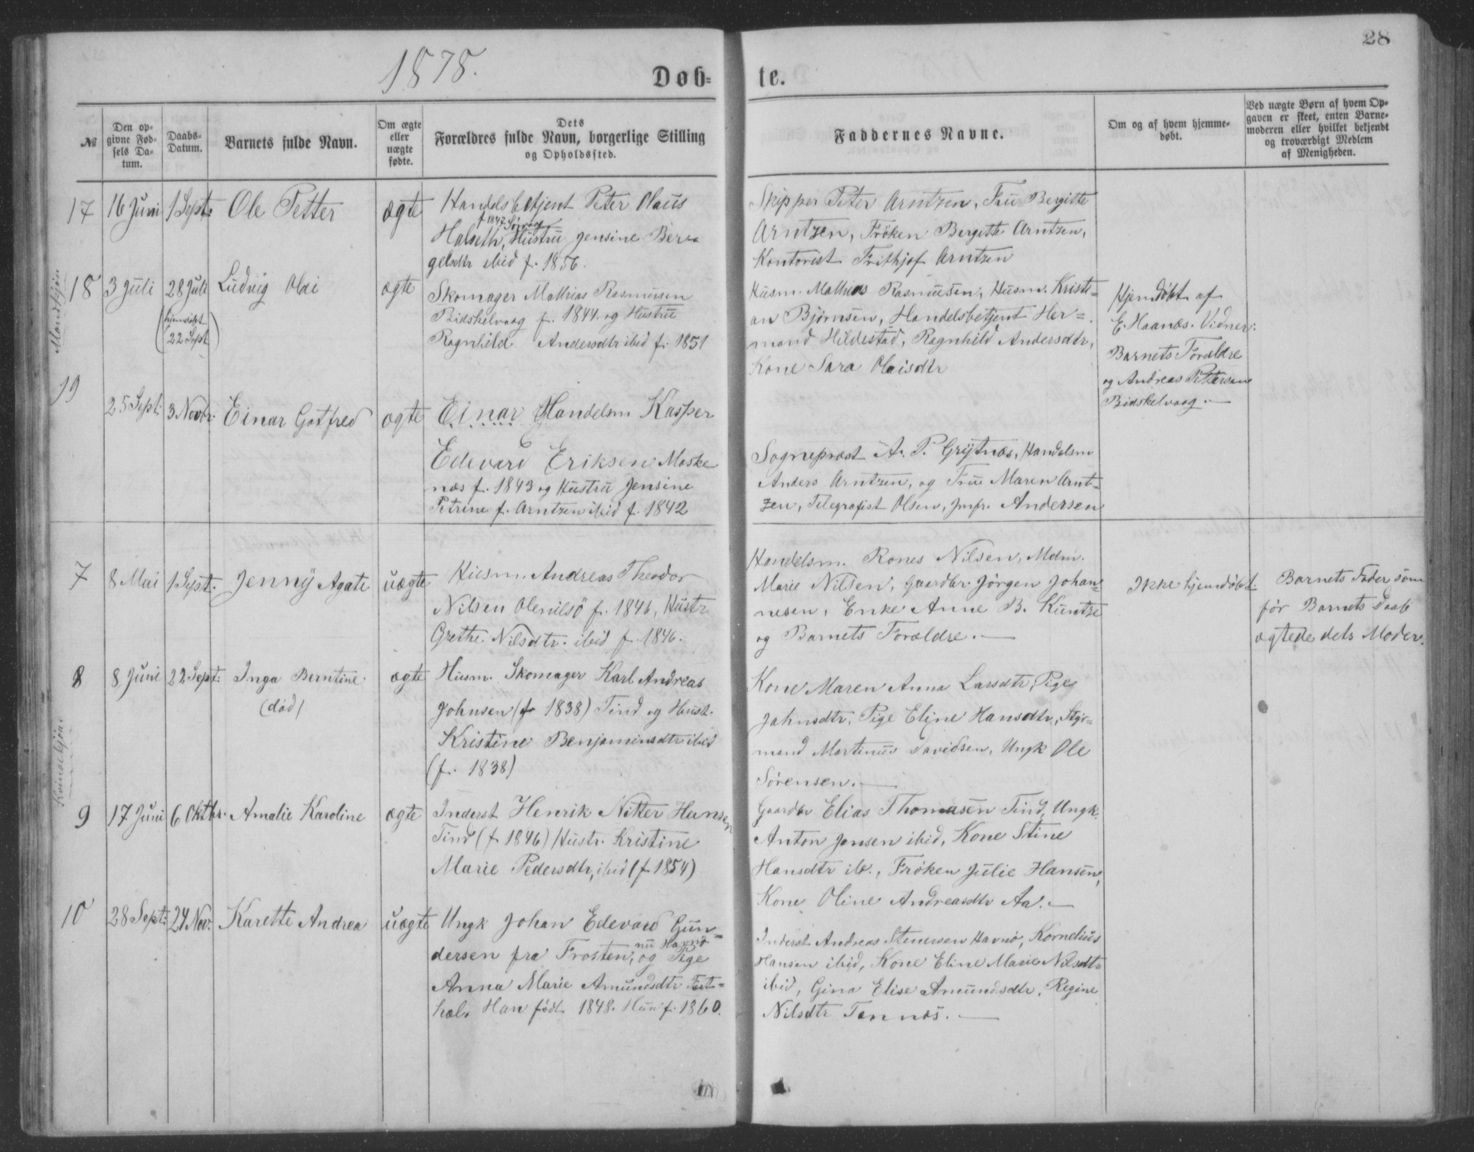 28
1878.
Døb-
te.
№
Den op-
givne Fød-
sels Da-
tum.
Daabs-
Datum.
Barnets fulde Navn.
Om ægte
eller
uægte
fødte.
Dets
Forældres fulde Navn, borgerlige Stilling
og Opholdssted.
Faddernes Navne.
Om og af hvem hjemme-
døbt.
Ved uægte Børn af hvem Op-
gaven er skeet, enten Barne-
moderen eller hvilket bekjendt
og troværdigt Medlem
af Menigheden.
17
16 Juni
1 Sept.
Ole Petter
ægte
Handelsbetjent Peter Olaus
f. 1842
Halseth, Hustru Jensine Ber-
gelsdtr ibid f. 1856.
Skipper Peter Arntzen, Fru Bergitte
Arntzen, Frøken Bergitte Arntzen,
Kontorist Frithjof Arntzen
18
3 Juli
28 Juli
22 Sept
Ludvig Olai
ægte
Skomager Mathias Rasmusen
Bidskelvaag f. 1844. og Hustru
Ragnhild Andersdtr ibid f. 1851
Husm. Mathias Rasmusen, Husm. Kristi-
an Bjørnsen, Handelsbetjent Her-
mand Hildestad, Ragnhild Andersdtr,
Kone Sara Olaisdtr
Hjemdøbt af
E. Haanæs. Vidner
Barnets Forældre
og Andreas Petersen
Bidskelvaag.
19
25 Sept.
3 Novbr.
Einar Gotfred
ægte
Einar Handelsm Kasper
Edevard Eriksen Moske
næs f. 1843 og Hustru Jensine
Petrine f. Arntzen ibid f. 1842
Sognepræst A. P. Grytnæs, Handelsm
Anders Arntzen, og Fru Maren Arnt-
zen, Telegrafist Olsen, Jmfr. Andersen
7
8 Mai
1 Sept.
Jenny Agate
uægte
Husm. Andreas Theodor
Nilsen Olenilsö f. 1846, Hustr
Grethe Nilsdtr. ibid f. 1846.
Handelsm. Rones Nilsen, Mdm.
Marie Nilsen, Gaardbr Jørgen Johan-
nesen, Enke Anne B. Kuntze
og Barnets Forældre.
Ikke hjemdøbt
Barnets Fader som
før Barnets Daab
ægtede dets Moder.
8
8 Juni
22 Sept.
Inga Berntine.
(død)
ægte
Husm. Skomager Karl Andreas
Johnsen (f. 1838) Tind og Hust.
Kristine Benjaminsdtr ibid
(f. 1838)
Kone Maren Anna Larsdtr, Pige
Jahnsdtr, Pige Eline Hansdtr, Styr-
mand Martinus Davidsen, Ungk Ole
Sørensen.
9
17 Juni
6 Oktbr.
Amalie Karoline
ægte
Inderst Henrik Nikter Hansen
Tind (f. 1846) Hustr. Kristine
Marie Pedersdtr, ibid (f. 1854)
Gaardbr Elias Thomasen Tind, Ungk.
Anton Jensen ibid, Kone Stine
Hansdtr ib., Frøken Julie Hansen,
Kone Oline Andreasdtr Aa.
10
28 Sept.
24 Nov.
Karette Andrea
uægte
Ungk Johan Edevard Gun-
nu Havnø
dersen fra Frosten, og Pige
Anna Marie Amundsdtr Fest-
hæl. Han født 1848. Hun f. 1860.
Inderst Andreas Stenersen Havnø, Kornelius
Hansen ibid, Kone Eline Marie Nilsdtr
ibid, Gina Elise Amundsdtr, Regine
Nilsdtr Tonnes.